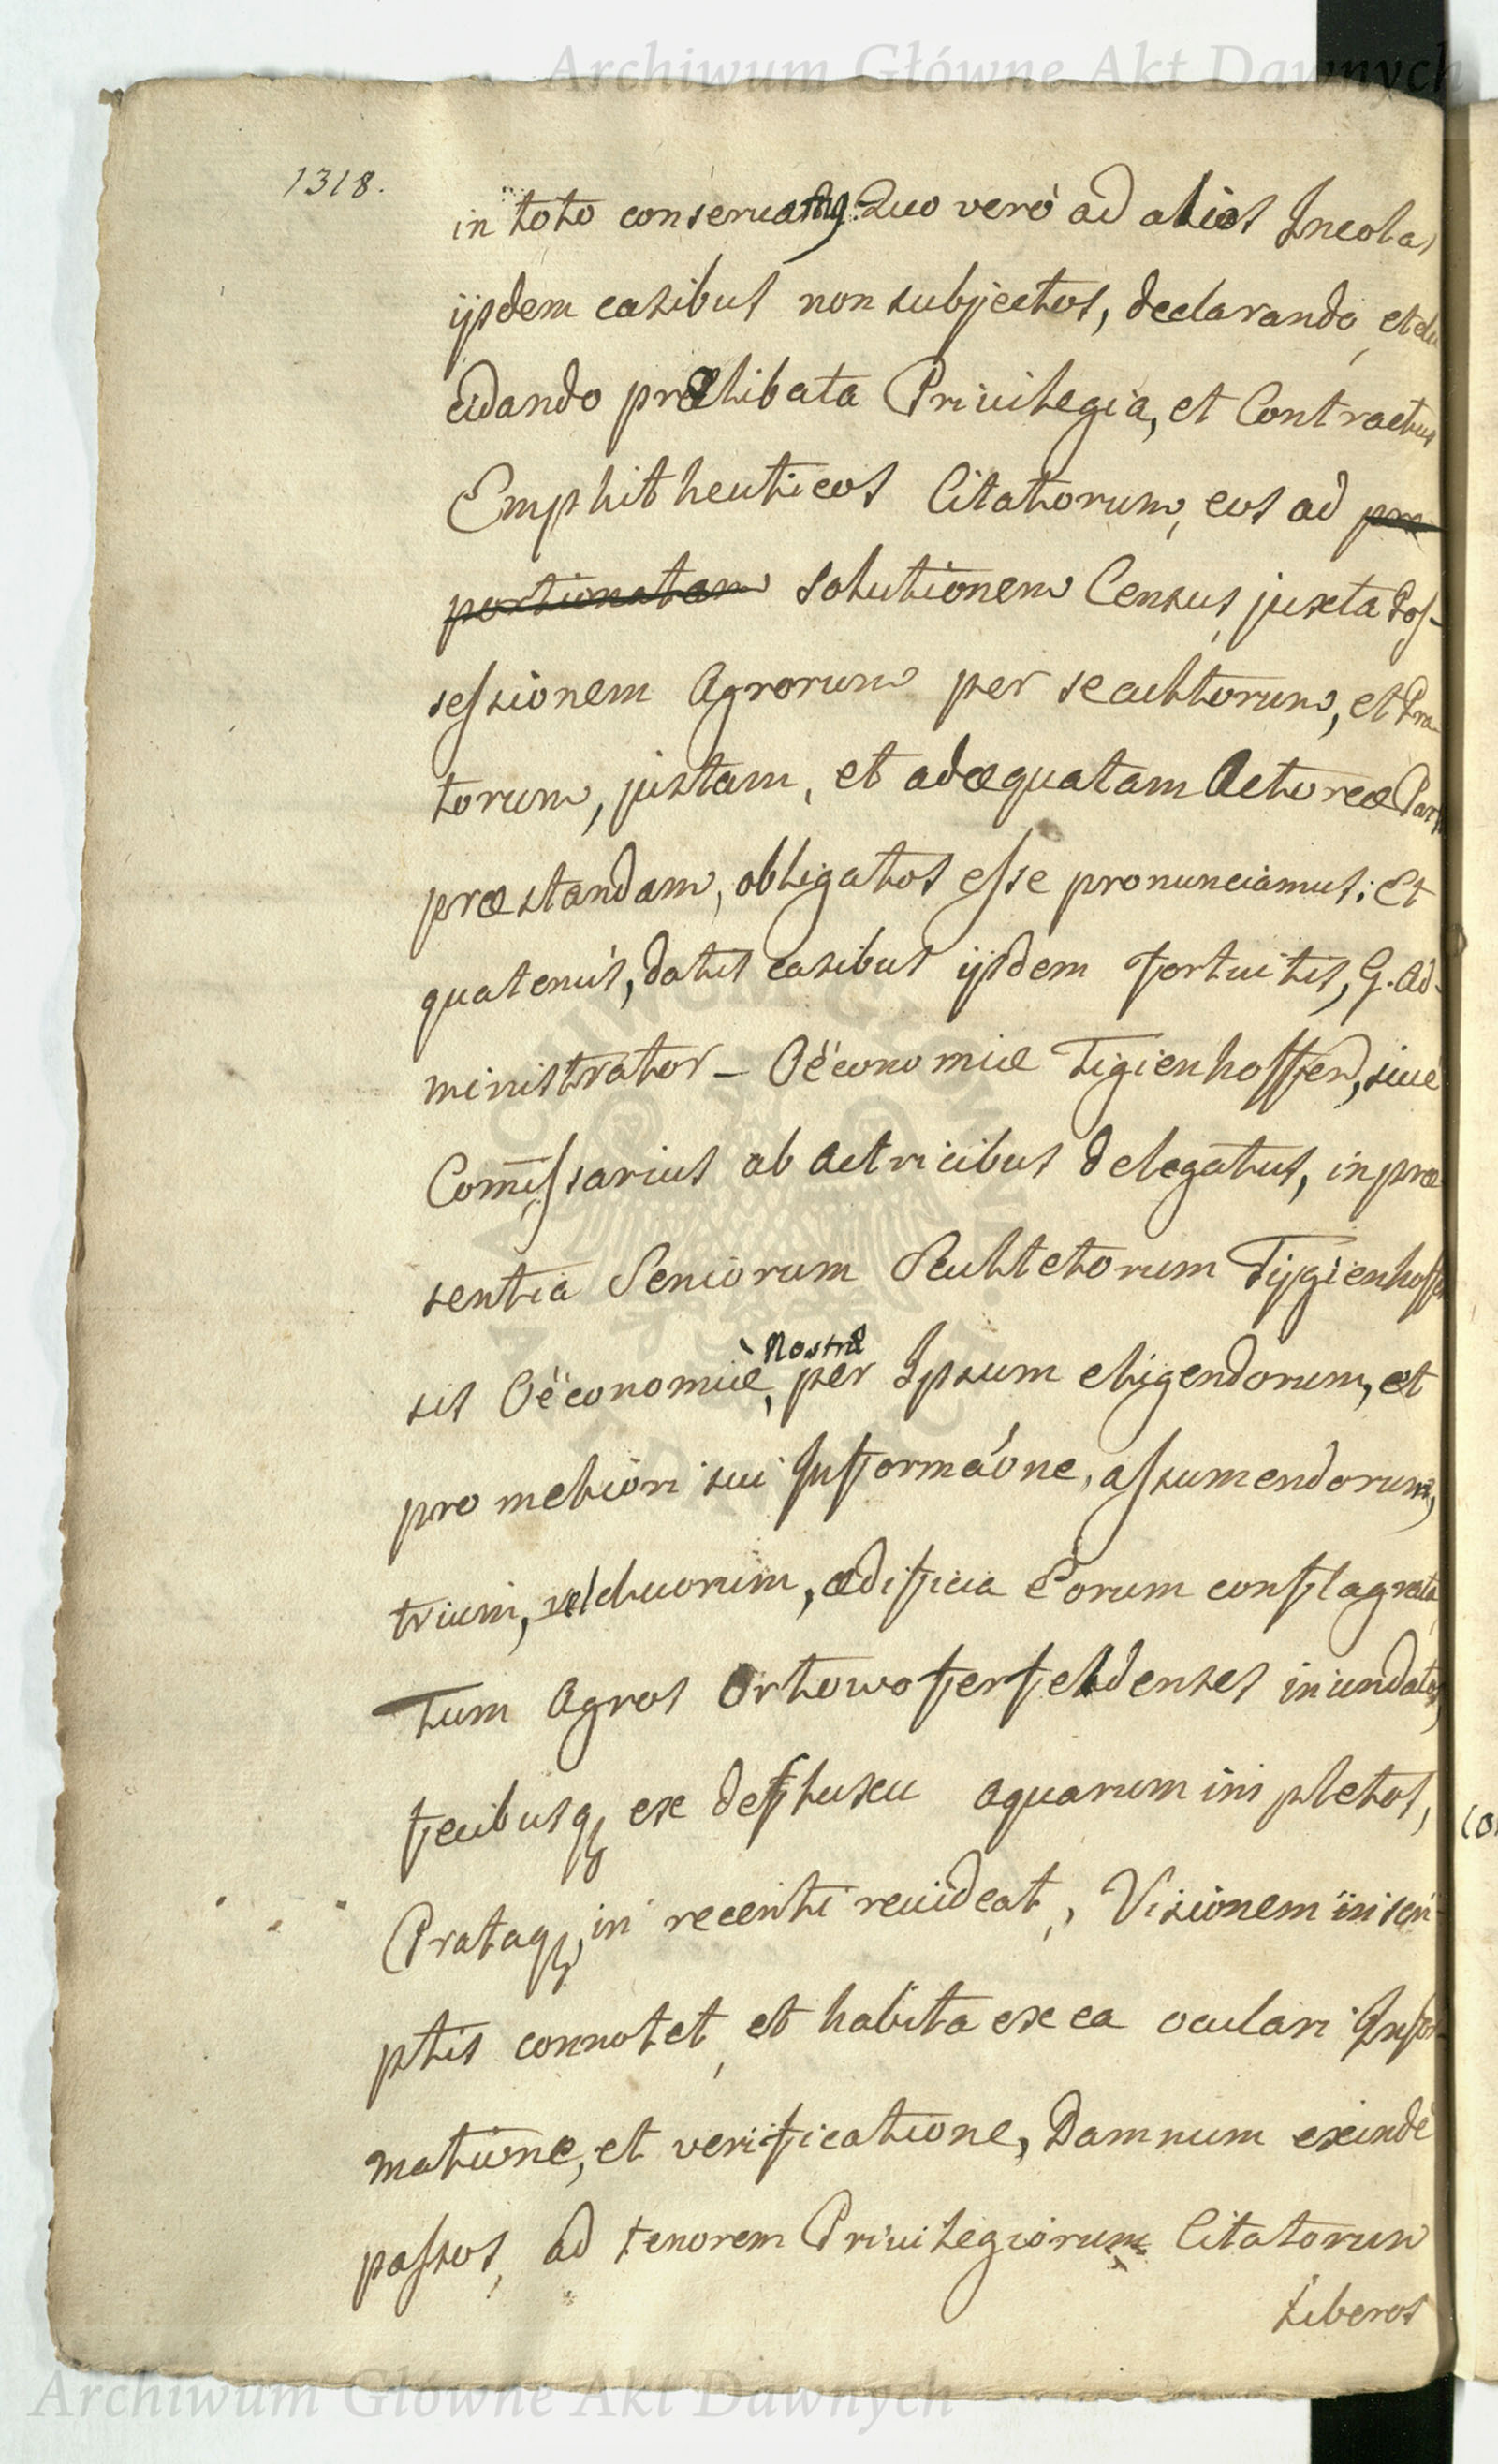 Archiwum Główne Akt Dawnych
1318.
in toto conseruamq. Quo veró ad alios Incolas
ijsdem casibus non subjectos, declarando, et elu
cidando prælibata Priuilegia, et Contractus
Emphitheuticos Citatorum, eos ad pro
portionatam solutionem Census, juxta Pos-
sessionem Agrorum per se cultorum, et Pra
torum, justam, et adæquatam Actoreæ Parti
præstandam, obligatos esse pronunciamus: Et
quatenus, datis casibus ijsdem fortuitis, G. Ad-
ministrator – Oëconomiæ Tigienhoffen, siue
Comissarius ab Actricibus delegatus, in præ
sentia Seniorum Scultetorum Tygienhoffen
sis Oëconomiæ, Nostræ per Ipsum eligendorum, et
pro meliori sui Informaóne, assumendorum,
trium, vel duorum, ædificia Eorum conflagrata
tum Agros Orlowoferfeldenses inundatos,
fecibusq, ex defluxu aquarum impletos,
Prataq, in recenti reuideat, Visionem in scri
ptis connotet, et habita ex ea oculari Infor
matione, et verificatione, Damnum exinde
passos, ad tenorem Priuilegiorum Citatorum
Liberos
Archiwum Główne Akt Dawnych